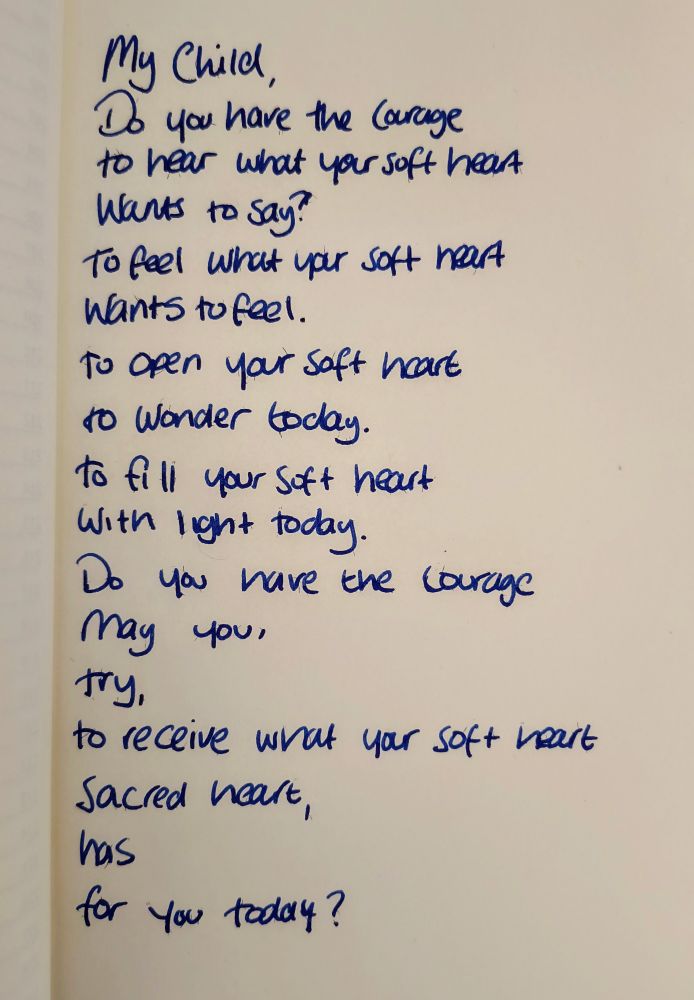 My Child,
Do you have the Courage
to hear what your soft heart
Wants to say?
To feel what your soft heart
Wants to feel.
To open your soft heart
to Wonder today.
To fill your soft heart
With light today.
Do you have the Courage
May you,
try,
to receive what your soft heart
Sacred heart,
has
for you today?